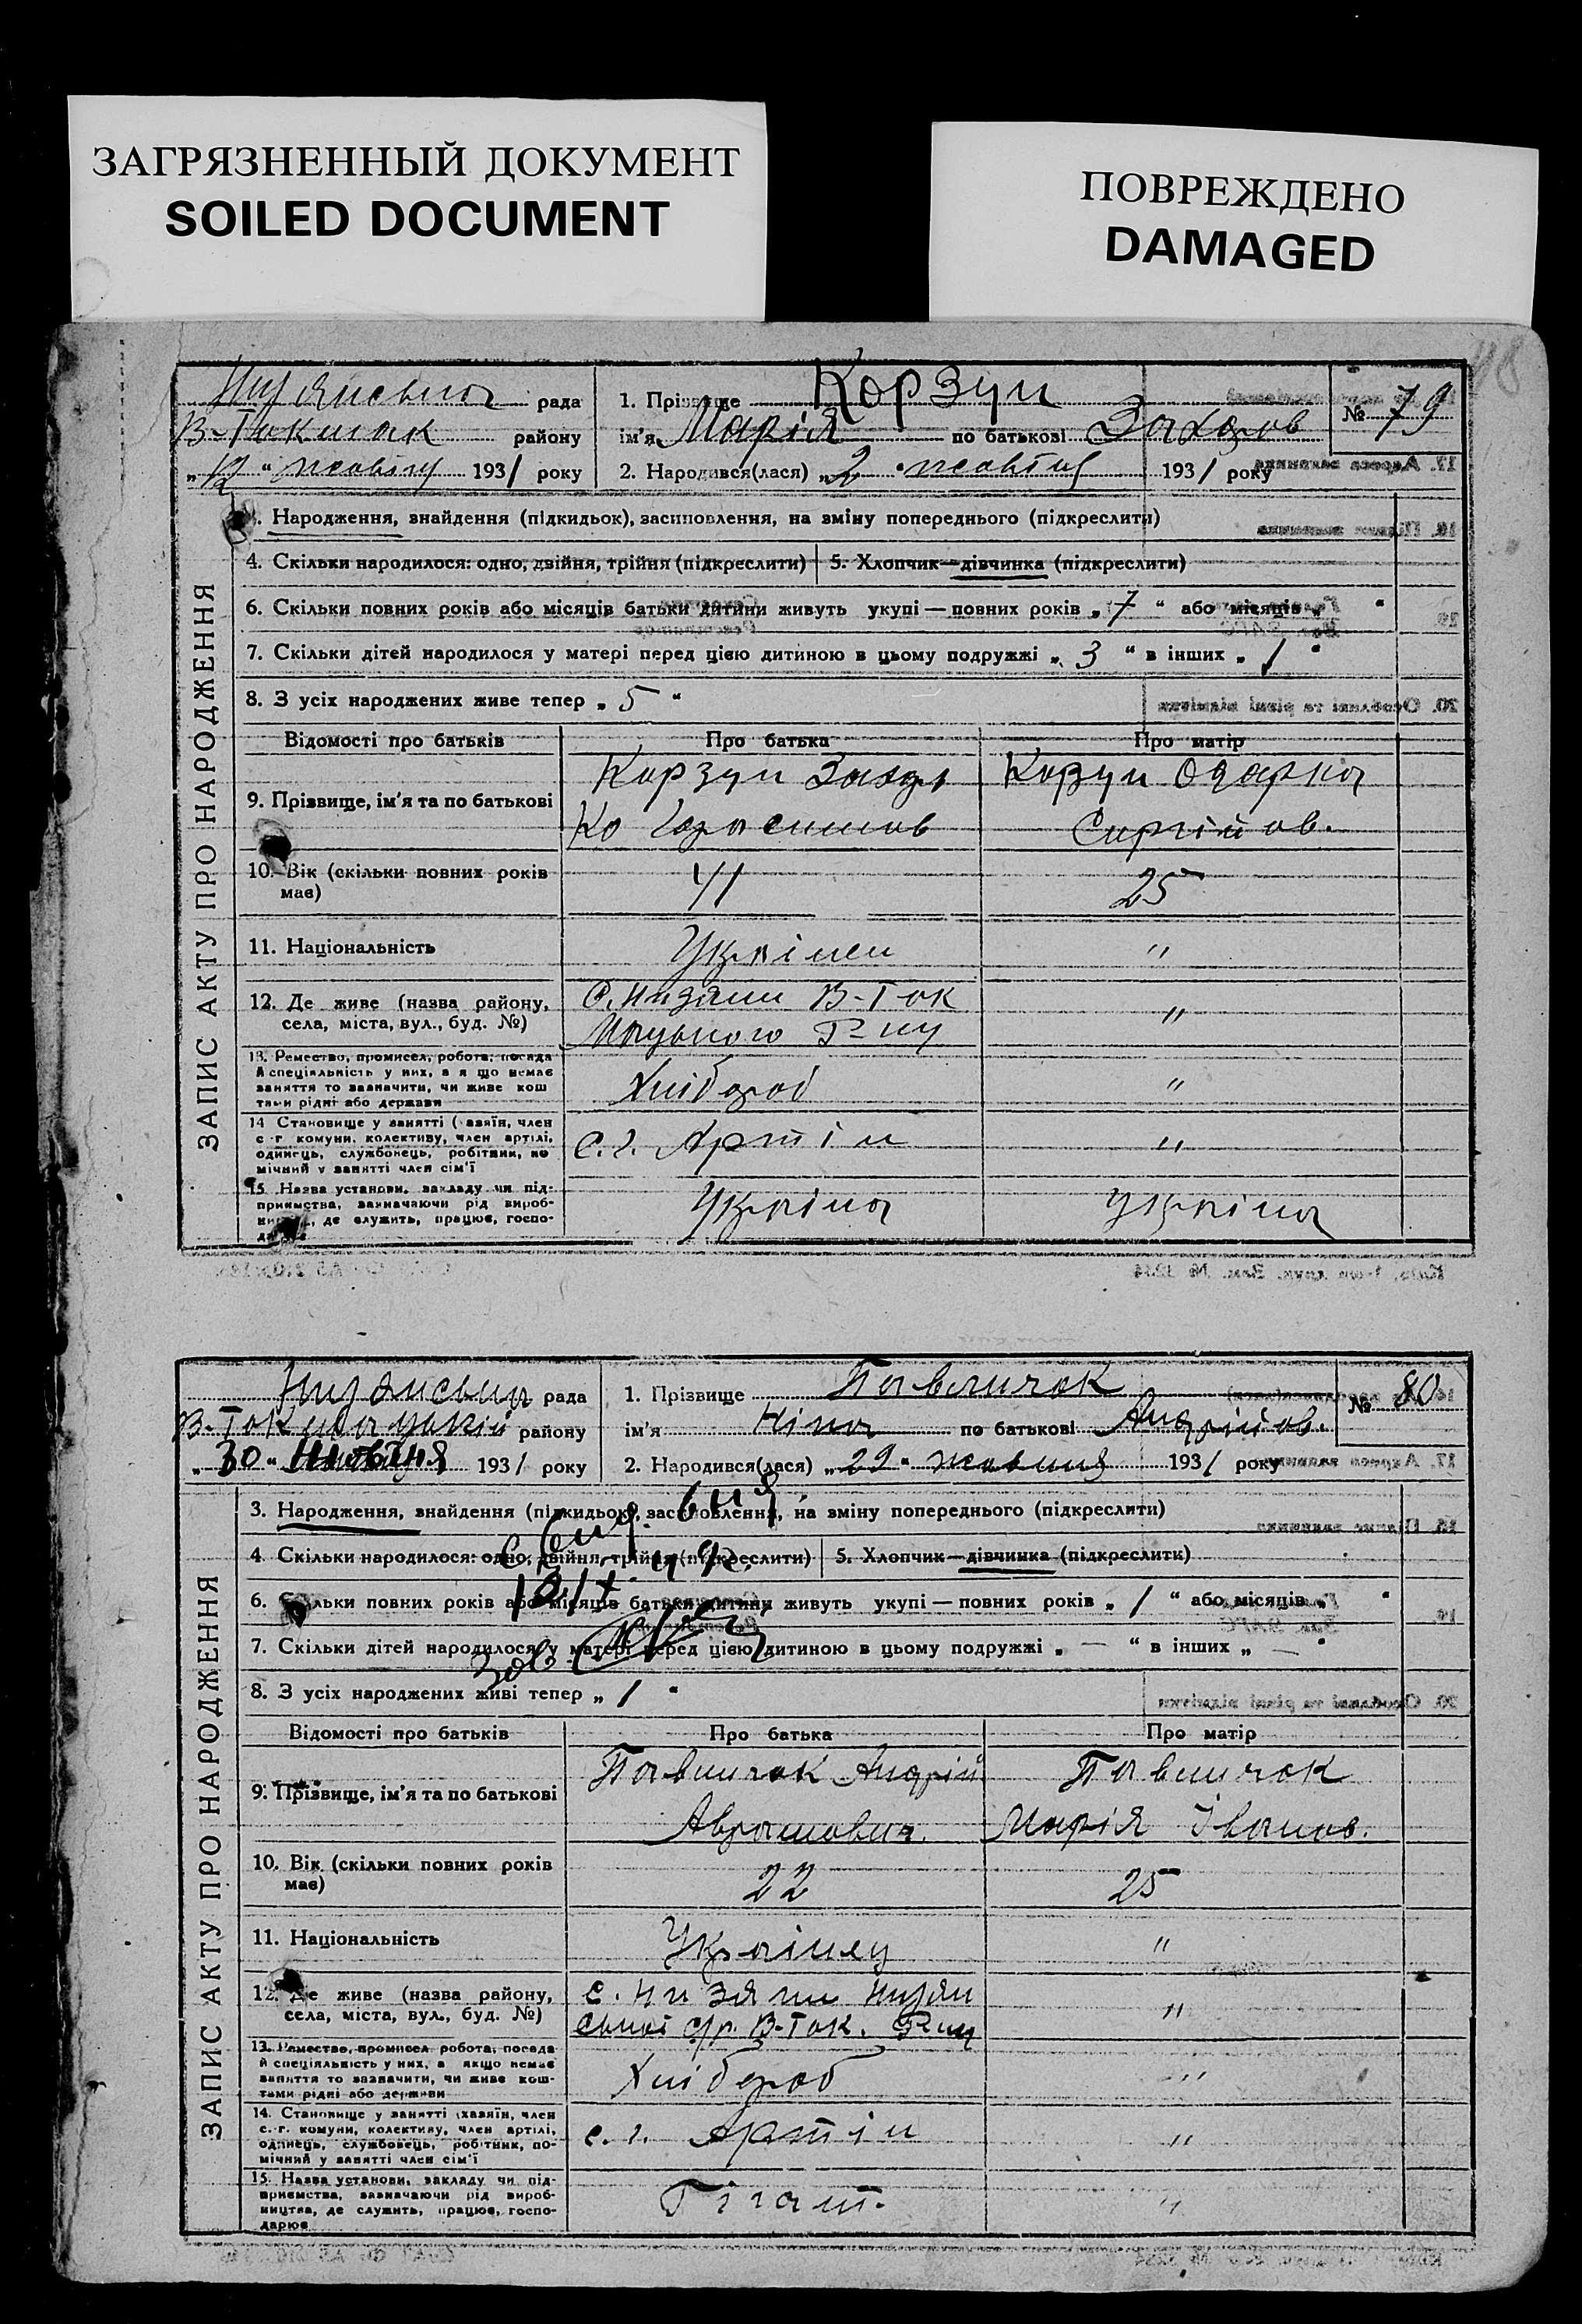 ЗАГРЯЗНЕННЫЙ ДОКУМЕНТ
SOILED DOCUMENT
ПОВРЕЖДЕНО
DAMAGED
рада
В-Токмак району
„12“ жовтня 1931 року
1. Прізвище Корзун
ім'я Марія по батькові Захаров
2. Народився(лася) „2“ жовтня 1931 року
№ 79
ЗАПИС АКТУ ПРО НАРОДЖЕННЯ
Народження, знайдення (підкидьок), засиновлення, на зміну попереднього (підкреслити)
4. Скільки народилося: одно, двійня, трійня (підкреслити) 5. Хлопчик—дівчинка (підкреслити)
6. Скільки повних років або місяців батьки дитини живуть укупі — повних років „7“ або місяців „ “
7. Скільки дітей народилося у матері перед цією дитиною в цьому подружжі „3“ в інших „1“
8. З усіх народжених живе тепер „5“
Відомості про батьків Про батька Про матір
9. Прізвище, ім'я та по батькові
Корзун Захар
Ко Гарасимов
Корзун Одарка
Сергійов.
10. Вік (скільки повних років має) 41 25
11. Національність Украінец "
12. Де живе (назва району,
села, міста, вул., буд. №)
С. Низяни В-Ток
Р-ну
"
13. Ремество, промисел, робота, посада
й спеціяльність у них, а якщо немає
заняття то зазначити, чи живе кош
тами рідні або держави
Хлібороб "
14 Становище у занятті (хазяїн, член
с-г комуни, колективу, член артілі,
одинець, службовець, робітник, по
мічний у занятті член сім'ї
с.г. Артіл "
15 Назва установи, закладу чи під-
приємства, зазначаючи рід вироб-
де служить, працює, госпо-
Украіна Украіна
рада
В-Токмацький району
„30“ жовтня 1931 року
1. Прізвище Павличок
ім'я Ніна по батькові Андрійов.
2. Народився(лася) „29“ жовтня 1931 року
№ 80
ЗАПИС АКТУ ПРО НАРОДЖЕННЯ
3. Народження, знайдення (підкидьок), засиновлення, на зміну попереднього (підкреслити)
4. Скільки народилося: одно, двійня, трійня (підкреслити) 5. Хлопчик—дівчинка (підкреслити)
6. Скільки повних років або місяців батьки дитини живуть укупі — повних років „1“ або місяців „ “
7. Скільки дітей народилося у матері перед цією дитиною в цьому подружжі „—“ в інших „—“
8. З усіх народжених живі тепер „1“
Відомості про батьків Про батька Про матір
9. Прізвище, ім'я та по батькові
Павличок Андрій
Аврамович.
Павличок
Марія Іванов.
10. Вік (скільки повних років має) 22 25
11. Національність Украінец "
12. Де живе (назва району,
села, міста, вул., буд. №)
с. Низяни Низян
ської с/р. В-Ток. Р-ну
"
13. Ремество, промисел робота, посада
й спеціяльність у них, а якщо немає
заняття то зазначити, чи живе кош-
тами рідні або держави
Хлібороб "
14. Становище у занятті (хазяїн, член
с.-г. комуни, колективу, член артілі,
одинець, службовець, робітник, по-
мічний у занятті член сім'ї
с.г. Артіл "
15. Назва установи, закладу чи під-
приємства, зазначаючи рід вироб-
ництва, де служить, працює, госпо-
дарює
Гігант. "